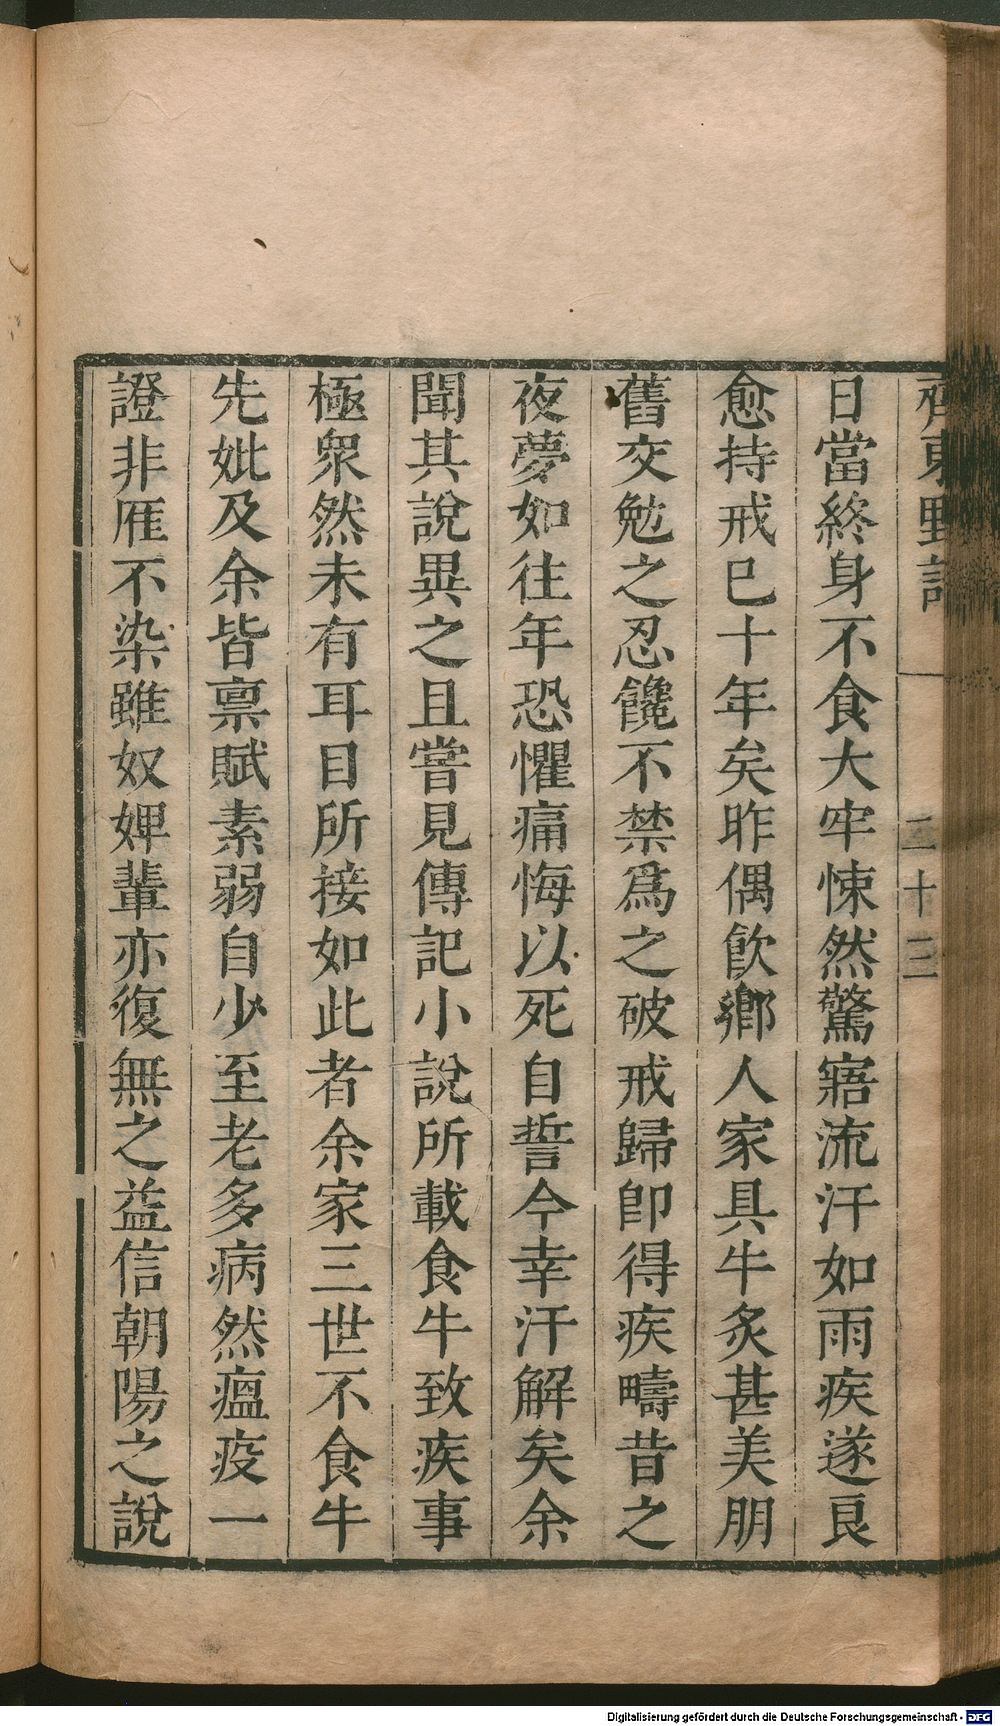 齊東野語
二十三
日當終身不食大牢悚然驚寤流汗如雨疾遂良
愈持戒已十年矣昨偶飮鄉人家具牛炙甚美朋
舊交勉之忍饞不禁爲之破戒歸卽得疾疇昔之
夜夢如往年恐懼痛悔以死自誓今幸汗解矣余
聞其說異之且嘗見傳記小說所載食牛致疾事
極衆然未有耳目所接如此者余家三世不食牛
先妣及余皆禀賦素弱自少至老多病然瘟疫一
證非雁不染雖奴婢輩亦復無之益信朝陽之說
Digitalisierung gefördert durch die Deutsche Forschungsgemeinschaft - DFG